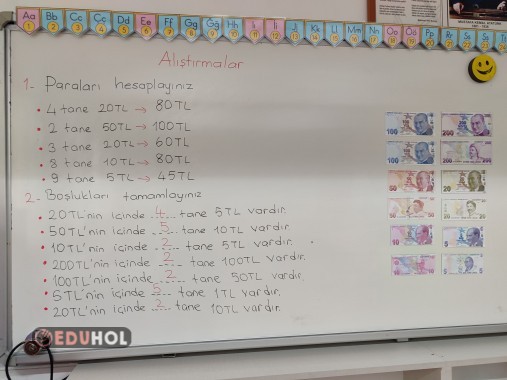 Aa Bb Cc Çç Dd Ee Ff Gg Ğğ Hh Iı İi Jj Kk Ll Mm Nn Oo Öö Pp Rr Ss Şş
Alıştırmalar
1- Paraları hesaplayınız
• 4 tane 20TL → 80TL
• 2 tane 50TL → 100TL
• 3 tane 20TL → 60TL
• 8 tane 10TL → 80TL
• 9 tane 5TL → 45TL
2- Boşlukları tamamlayınız
• 20TL'nin içinde ..4.... tane 5TL vardır.
• 50TL'nin içinde ..5... tane 10TL vardır.
• 10TL'nin içinde ..2... tane 5TL vardır.
• 200TL'nin içinde ..2... tane 100TL vardır.
• 100TL'nin içinde ..2... tane 50TL vardır.
• 5TL'nin içinde ..5... tane 1TL vardır.
• 20TL'nin içinde ..2... tane 10TL vardır.
100 200
100 200
50 20
50 20
10 5
10 5
EDUHOL